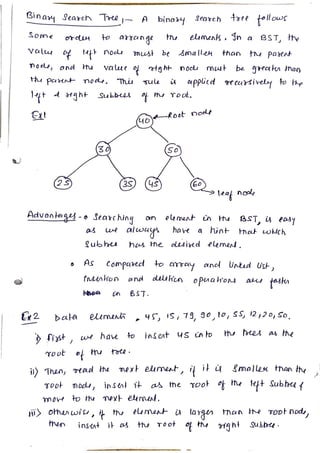 Binary Search Tree :- A binary search tree follows
some order to arrange the elements. In a BST, the
value of left node must be smaller than the parent
node, and the value of right node must be greater than
the parent node. This rule is applied recursively to the
left & right subtrees of the root.
Ex1
40 → Root node
30 50
25 35 45 60
→ leaf node
Advantages - • Searching an element in the BST is easy
as we always have a hint that which
subtree has the desired element.
• As compared to array and linked list,
insertion and deletion operations are faster
in BST.
Ex2 Data elements - 45, 15, 79, 90, 10, 55, 12, 20, 50.
i) first, we have to insert 45 into the tree as the
root of the tree.
ii) Then, read the next element, if it is smaller than the
root node, insert it as the root of the left subtree &
move to the next element.
iii) otherwise, if the element is larger than the root node,
then insert it as the root of the right subtree.